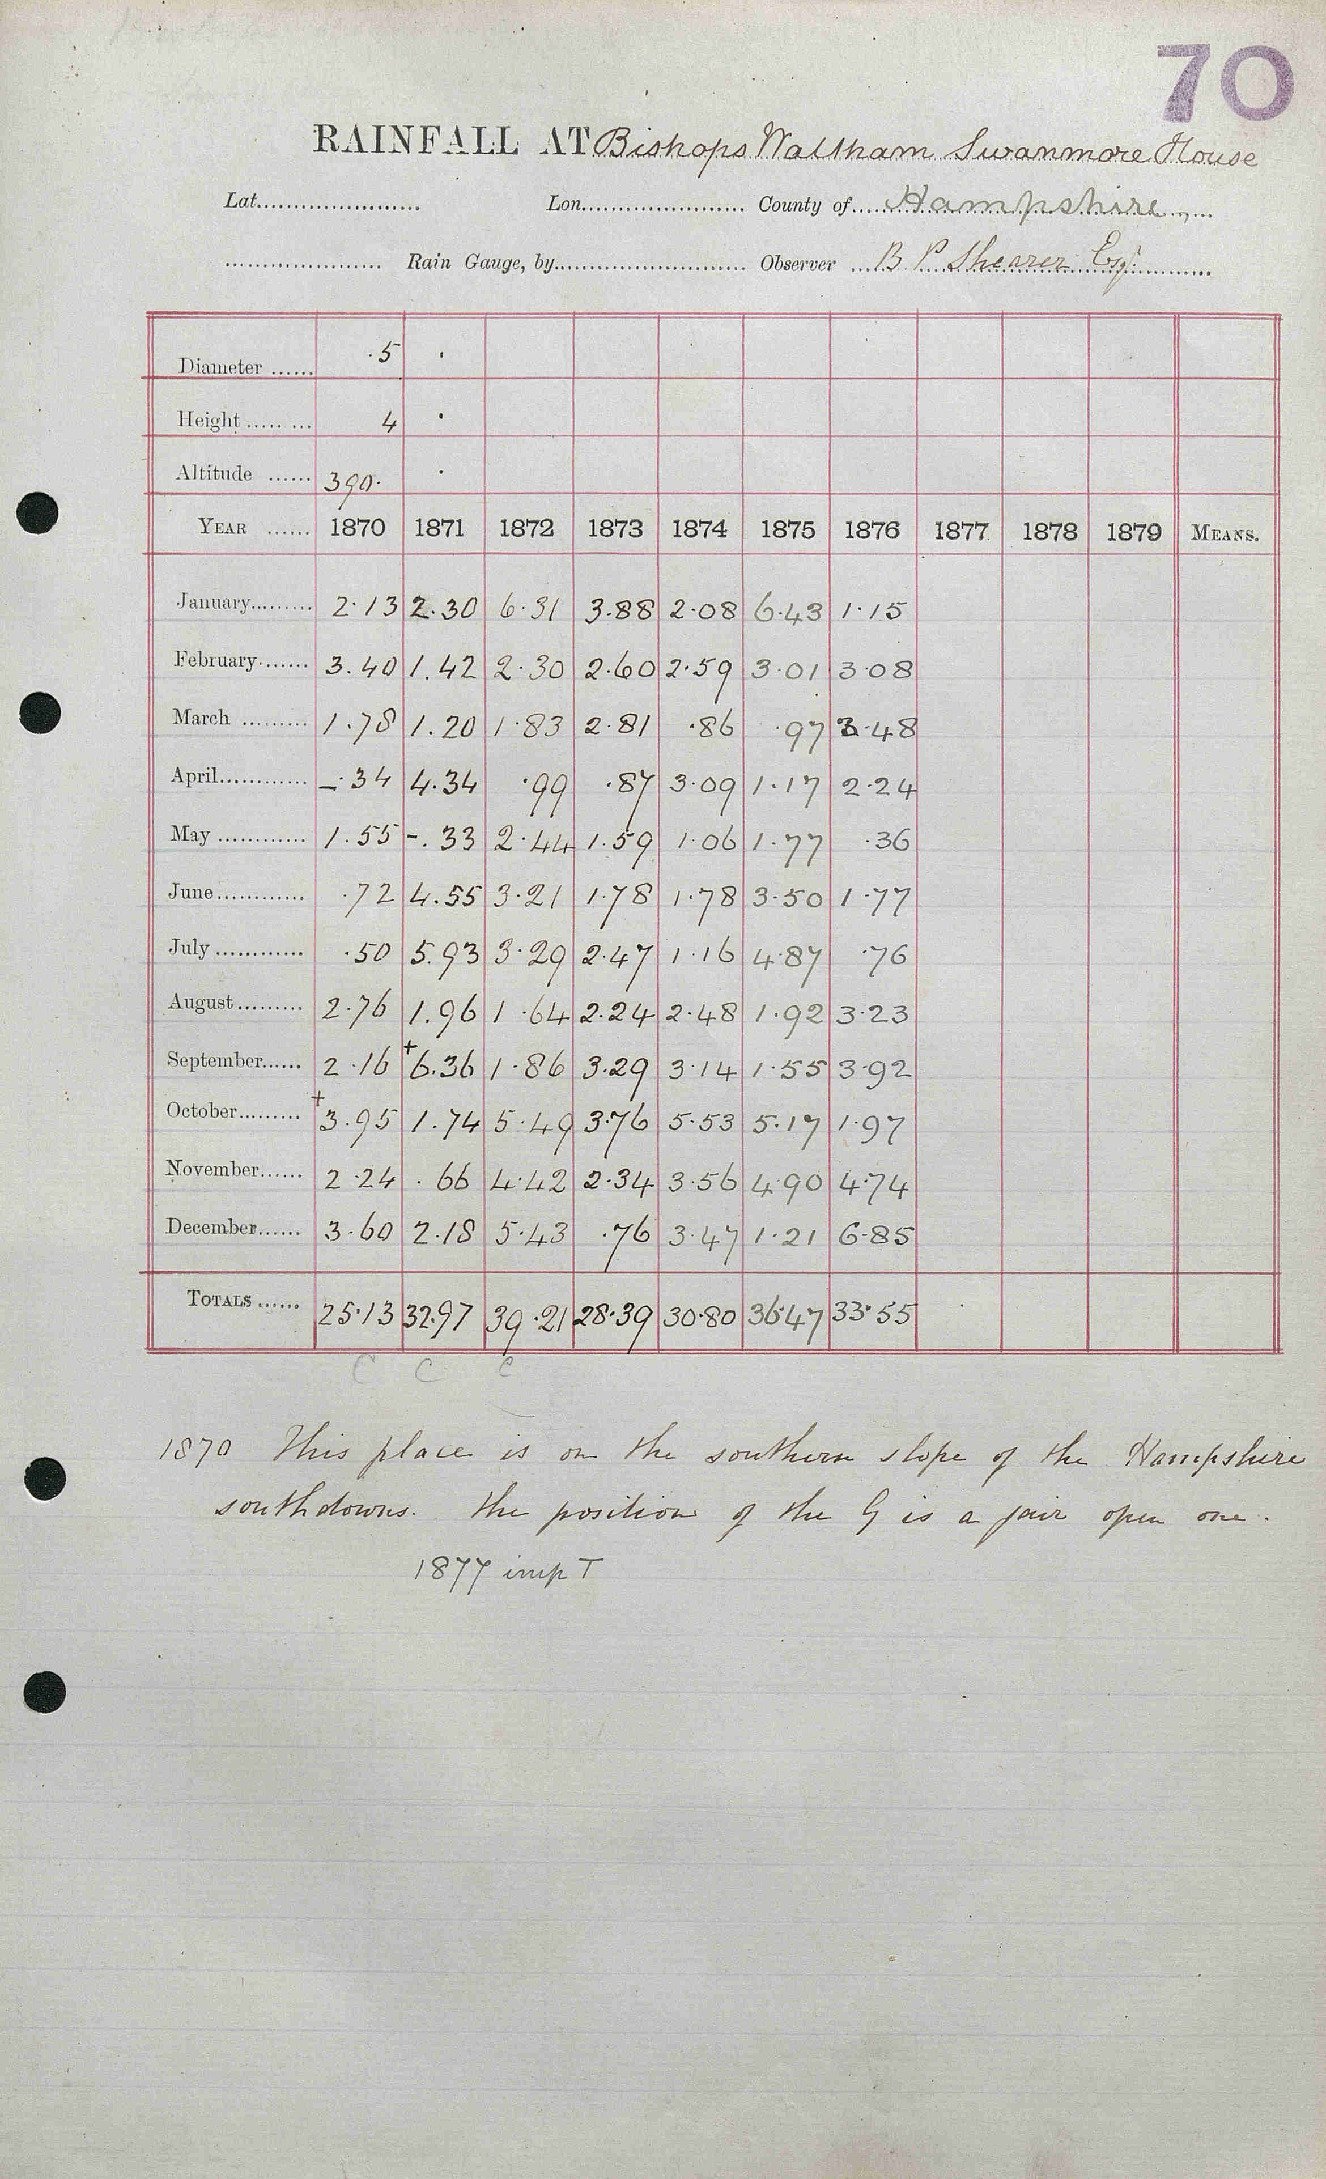 70
RAINFALL AT Bishops Waltham Swanmore House
Lat...................... Lon...................... County of.... Hampshire
..................... Rain Gauge, by......................... Observer ... B P Shearer Esqr
Diameter ...... .5 .
Height ........ 4 .
Altitude ...... 390. .
YEAR ...... 1870 1871 1872 1873 1874 1875 1876 1877 1878 1879 MEANS.
January......... 2.13 2.30 6.31 3.88 2.08 6.43 1.15
February....... 3.40 1.42 2.30 2.60 2.59 3.01 3.08
March ......... 1.78 1.20 1.83 2.81 .86 .97 3.48
April............ -.34 4.34 .99 .87 3.09 1.17 2.24
May ............ 1.55 -.33 2.44 1.59 1.06 1.77 .36
June............ .72 4.55 3.21 1.78 1.78 3.50 1.77
July ............ .50 5.93 3.29 2.47 1.16 4.87 .76
August......... 2.76 1.96 1.64 2.24 2.48 1.92 3.23
September...... 2.16 +6.36 1.86 3.29 3.14 1.55 3.92
October......... +3.95 1.74 5.49 3.76 5.53 5.17 1.97
November...... 2.24 .66 4.42 2.34 3.56 4.90 4.74
December...... 3.60 2.18 5.43 .76 3.47 1.21 6.85
TOTALS ...... 25.13 32.97 39.21 28.39 30.80 36.47 33.55
C C C
1870 This place is on the southern slope of the Hampshire
southdowns. The position of the G is a fair open one.
1877 imp T